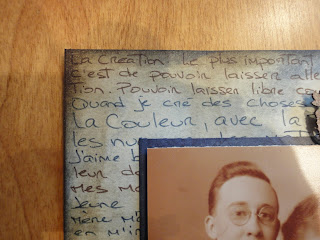 La création. Le plus important
c'est de pouvoir laisser
tion. Pouvoir laisser libre
Quand je crée des choses
la couleur, avec la
les
j'aime
leur
mes
jeune
mère
en m'